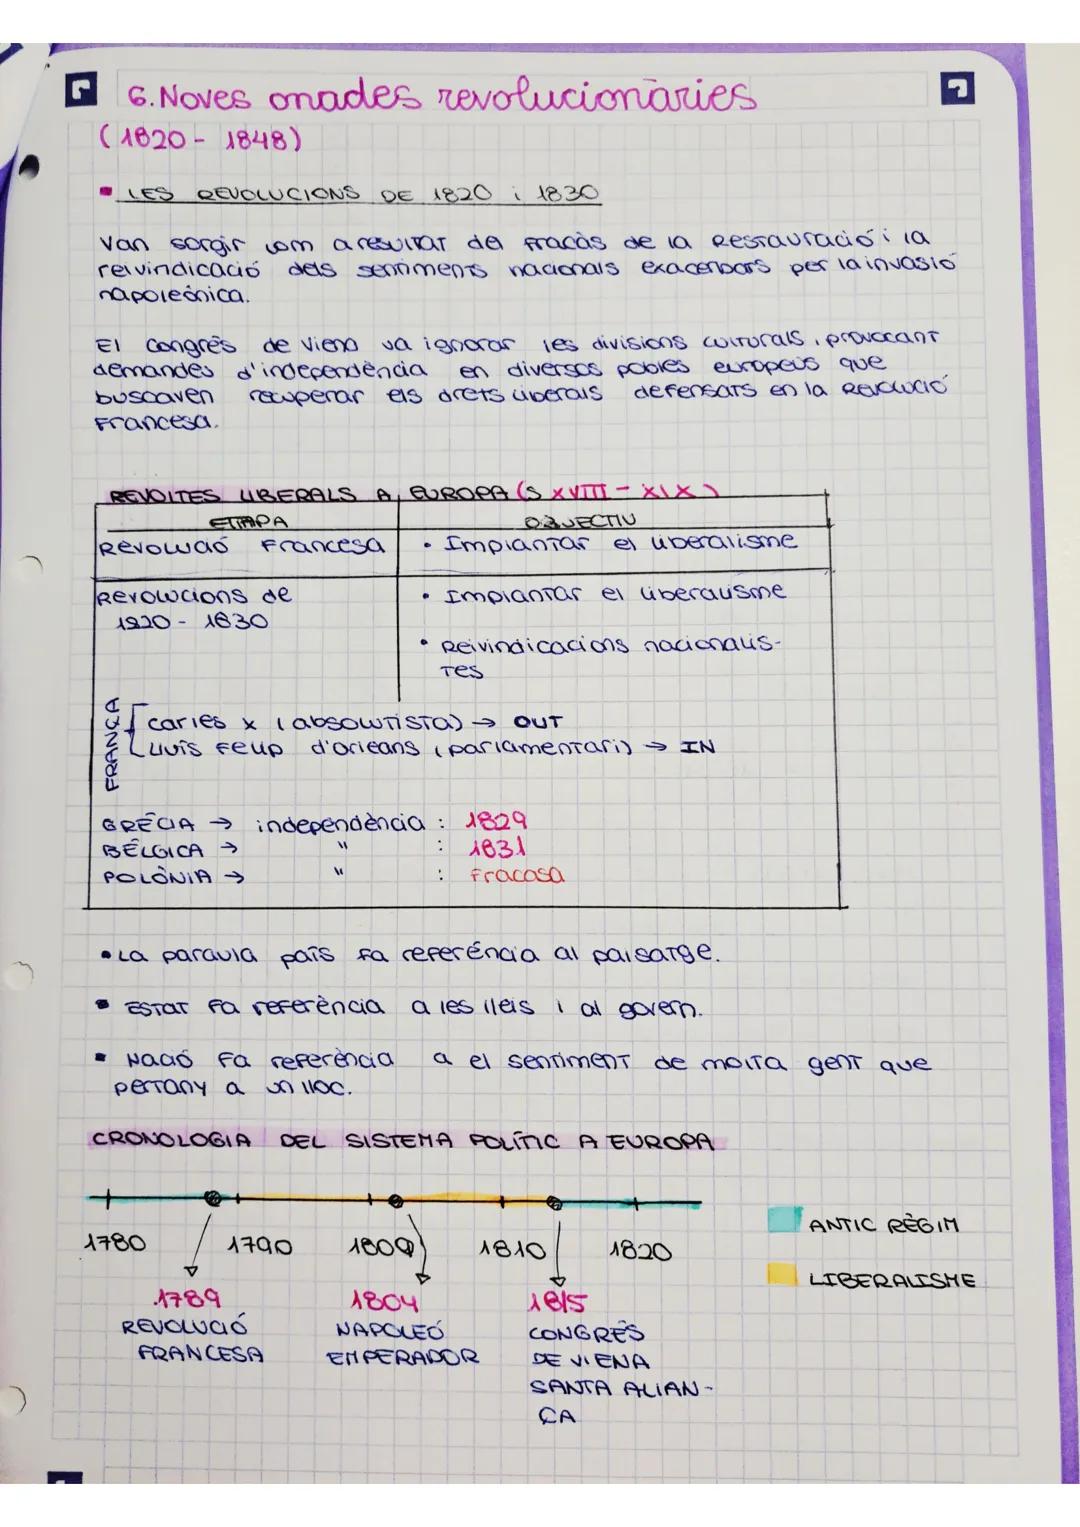 6. Noves onades revolucionàries
(1820 - 1848)
LES REVOLUCIONS DE 1820 i 1830
Van sorgir com a resultat del fracàs de la Restauració i la
reivindicació dels sentiments nacionals exacerbats per la invasió
napoleònica.
El Congrés de Viena va ignorar les divisions culturals, provocant
demandes d'independència en diversos pobles europeus que
buscaven recuperar els drets liberals defensats en la Revolució
Francesa.
REVOLTES LIBERALS A EUROPA (S XVIII - XIX)
ETAPA OBJECTIU
Revolució Francesa • Implantar el liberalisme
Revolucions de • Implantar el liberalisme
1920 - 1830
• Reivindicacions nacionalis-
tes
FRANÇA
Carles X (absolutista) → OUT
Lluís Felip d'orleans (parlamentari) → IN
GRÈCIA → independència : 1829
BÈLGICA → " : 1831
POLÒNIA → " : fracasa
• La paraula país fa referéncia al paisatge.
• ESTAT fa referència a les lleis i al govern.
• Nació fa referència a el sentiment de molta gent que
pertany a un lloc.
CRONOLOGIA DEL SISTEMA POLÍTIC A EUROPA
1780 1790 1800 1810 1820
ANTIC RÈGIM
LIBERALISME
1789 1804 1815
REVOLUCIÓ NAPOLEÓ CONGRÉS
FRANCESA EMPERADOR DE VIENA
SANTA ALIAN-
ÇA